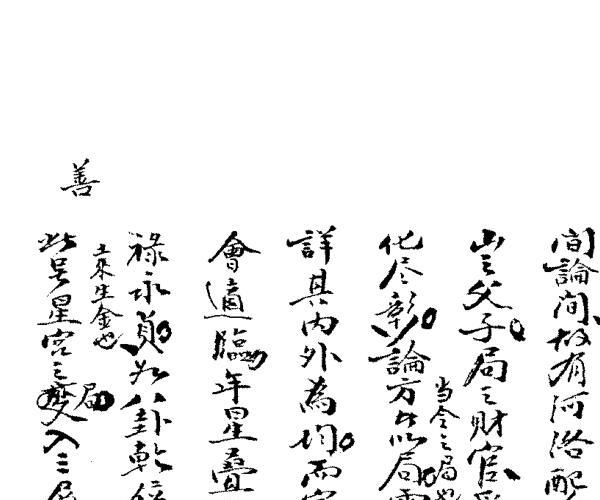 間論間故有河洛配
山之父子局之財官
化尽彰論方位以局
當令之局也
詳其內外為均而
會適臨年星疊
祿永貞為八卦乾
土來生金也
此吊星宮之變局入三
善